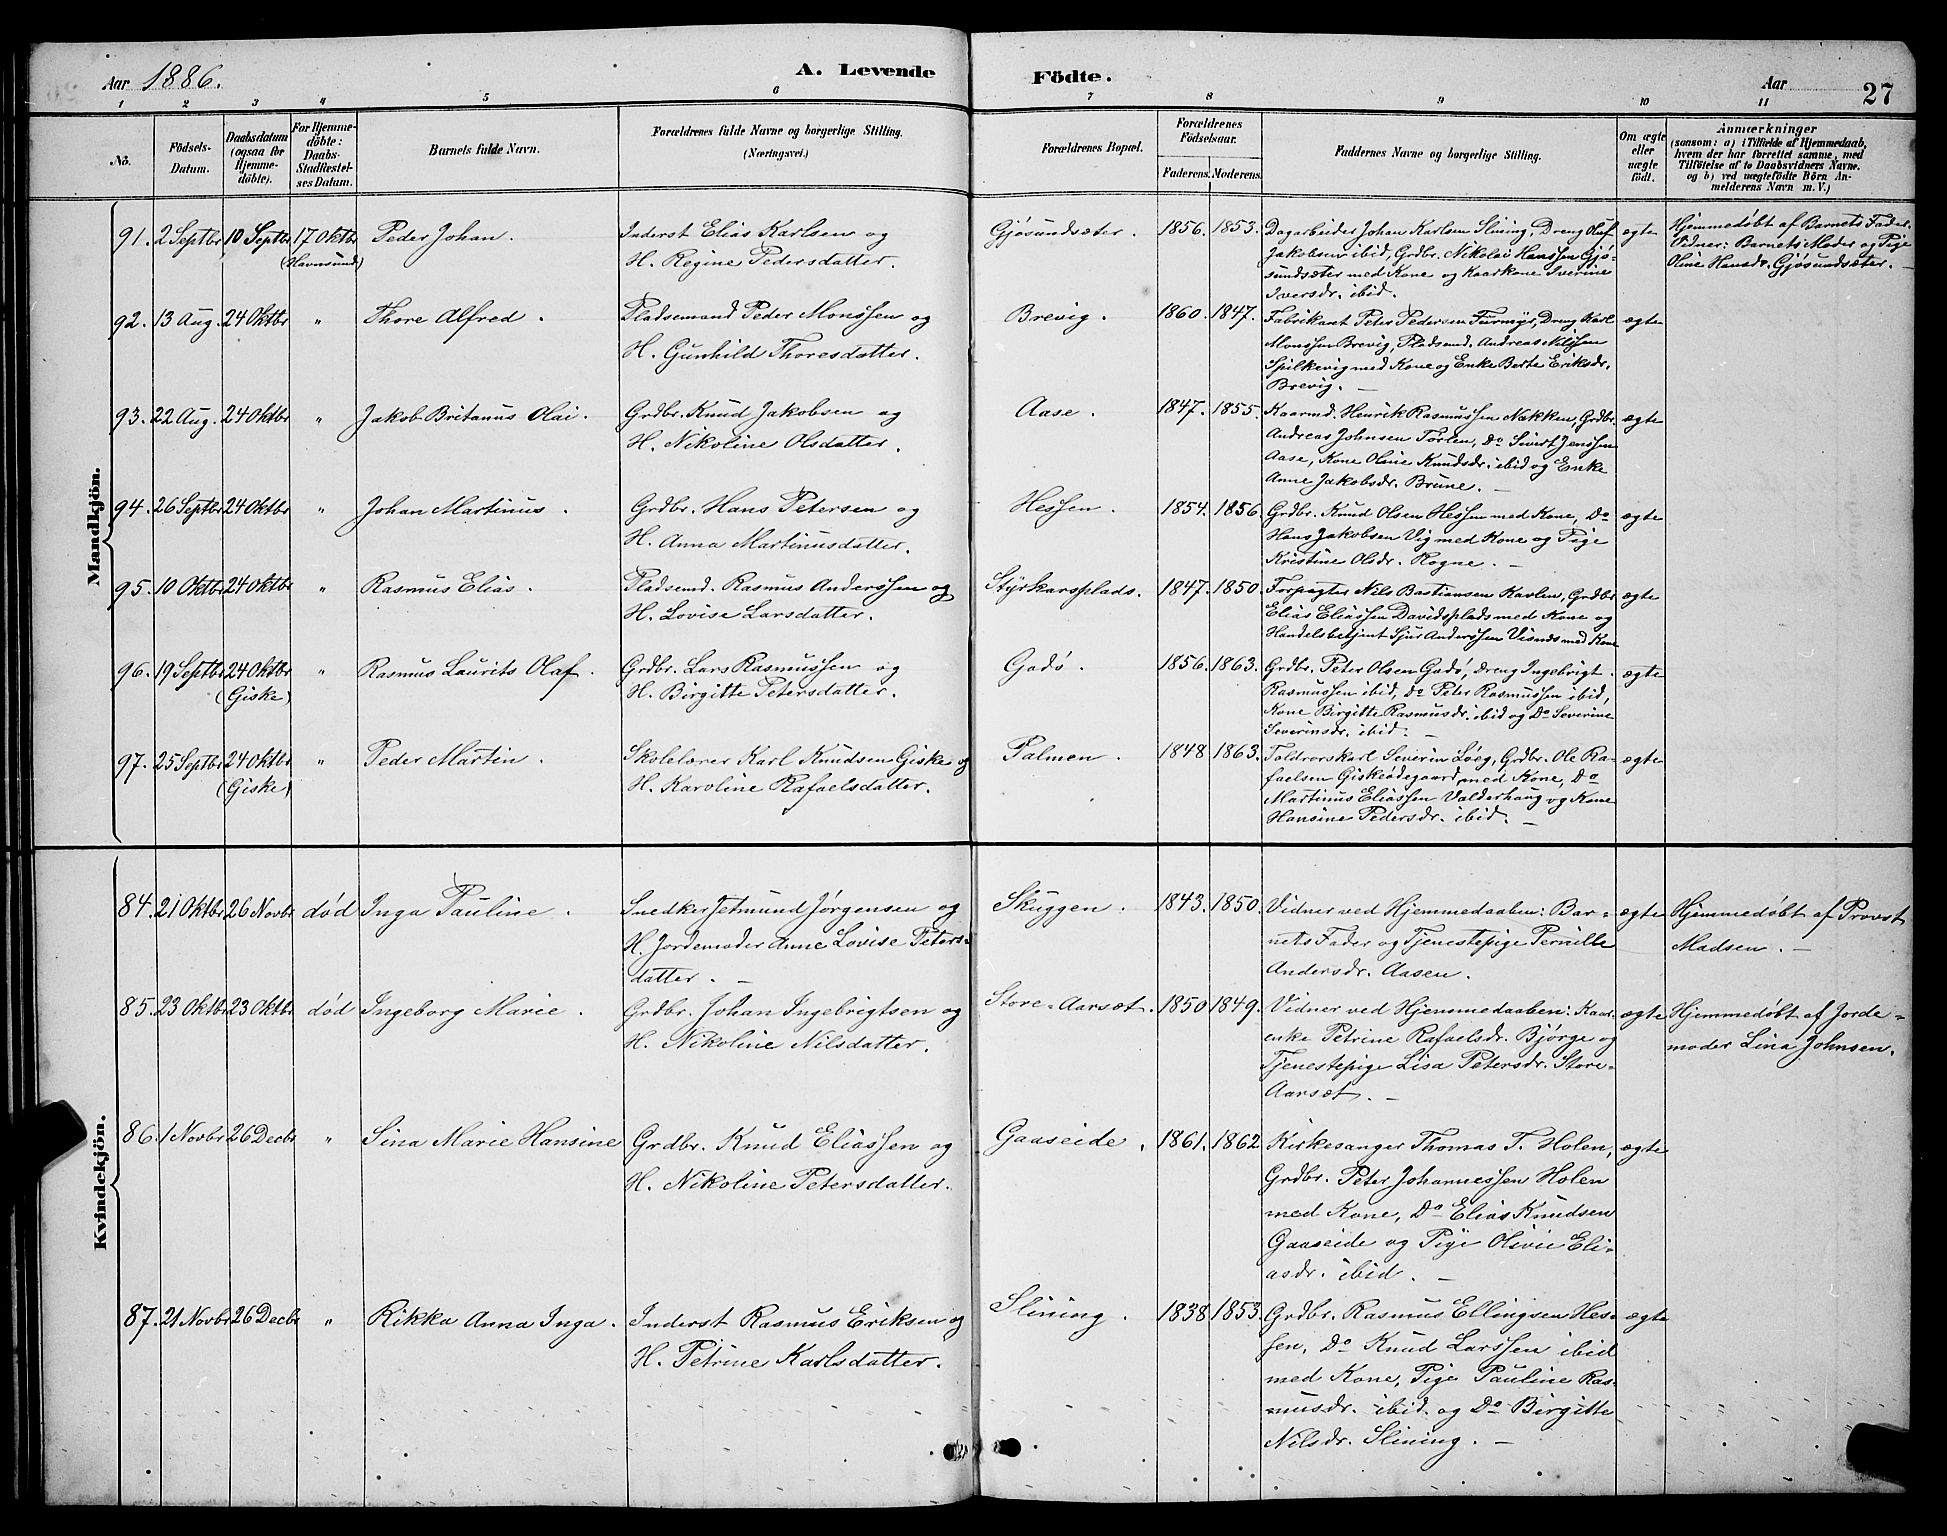 Aar 1886. A. Levende Födte. Aar 27
1 2 3 4 5 6 7 8 9 10 11
No.
Födsels-Datum.
Daabsdatum (ogsaa for Hjemme-döbte).
For Hjemme-döbte: Daabs-Stadfestel-ses Datum.
Barnets fulde Navn.
Forældrenes fulde Navne og borgerlige Stilling.
(Næringsvei.)
Forældrenes Bopæl.
Forældrenes Födselsaar.
Faderens. Moderens.
Faddernes Navne og borgerlige Stilling.
Om ægte eller uægte födt.
Anmærkninger
(saasom: a) i Tilfælde af Hjemmedaab, hvem der har forrettet samme, med Tilföielse af to Daabsvidners Navne. og b) ved uægtefödte Börn An-melderens Navn m. V.)
Mandkjön.
91. 2 Septbr 10 Septbr 17 Oktbr (Havnsund) Peder Johan.
Inderst Elias Karlsen og
H. Regine Pedersdatter.
Gjøsundsæter. 1856. 1853.
Dagarbeider Johan Karlsen Slining, Dreng Oluf
Jakobsen ibid, Grdbr. Nikolai Hanssen Gjø-
sundsæter med Kone og Kaarkone Iverine
Iversdr. ibid.
ægte
Hjemmedøbt af Barnets Fader.
Vidner: Barnets Moder og Pige
Oline Hansdr. Gjøsundsæter. —
92. 13 Aug. 24 Oktbr " Thore Alfred.
Pladsemand Peder Monssen og
H. Gunhild Thoresdatter.
Brevig. 1860. 1847.
Fabrikant Peter Pedersen Furmyr, Dreng Karl
Monssen Brevig, Pladsmd. Andreas Nilssen
Spilkevig med Kone og Enke Berte Eriksdr.
Brevig. —
ægte
93. 22 Aug. 24 Oktbr " Jakob Britanus Olai.
Grdbr. Knud Jakobsen og
H. Nikoline Olsdatter.
Aase. 1847. 1855.
Kaarmd. Henrik Rasmussen Nækken, Grdbr.
Andreas Johnsen Torlen, Do Sivert Jenssen
Aase, Kone Oline Knudsdr. ibid og Enke
Anne Jakobsdr. Brune. —
ægte
94. 26 Septbr 24 Oktbr " Johan Martinus.
Grdbr. Hans Petersen og
H. Anna Martinusdatter.
Hessen. 1854. 1856.
Grdbr. Knud Olsen Hessen med Kone, Do
Hans Jakobsen Vig med Kone og Pige
Kristine Olsdr. Rogne. —
ægte
95. 10 Oktbr 24 Oktbr " Rasmus Elias.
Pladsemd. Rasmus Anderssen og
H. Lovise Larsdatter.
Styrkarsplads. 1847. 1850.
Forpagter Nils Bastiansen Kavlen, Grdbr
Elias Eliassen Davidsplads med Kone og
Handelsbetjent Sjur Anderssen Visnes med Kone
ægte
96. 19 Septbr 24 Oktbr (Giske) " Rasmus Laurits Olaf.
Grdbr. Lars Rasmussen og
H. Birgitte Petersdatter.
Godø. 1856. 1863.
Grdbr. Peter Olsen Godø, Dreng Ingebrigt
Rasmussen ibid, Do Peter Rasmussen ibid,
Kone Birgitte Rasmusdr. ibid og Do Severine
Severinsdr. ibid. —
ægte
97. 25 Septbr 24 Oktbr (Giske) " Peder Martin.
Skolelærer Karl Knudsen Giske og
H. Karoline Rafaelsdatter.
Palmen. 1848 1863.
Toldrorskarl Severin Løeg, Grdbr. Ole Ra-
faelsen Giskeødegaard med Kone, Do
Martinus Eliassen Valderhaug og Kone
Hansine Pedersdr. ibid. —
ægte
Kvindekjön.
84. 21 Oktbr 26 Novbr død Inga Pauline.
Snedker Jetmund Jørgensen og
H. Jordemoder Anne Lovise Peters-
datter. —
Skuggen. 1843. 1850.
Vidner ved Hjemmedaaben: Bar-
nets Fader og Tjenestepige Pernille
Andersdr. Aasen.
ægte
Hjemmedøbt af Provst
Madsen. —
85. 23 Oktbr 23 Oktbr død Ingeborg Marie.
Grdbr. Johan Ingebrigtsen og
H. Nikoline Nilsdatter.
Store-Aarsæt. 1850 1849.
Vidner ved Hjemmedaaben: Kaar-
enke Petrine Rafaelsdr. Bjørge og
Tjenestepige Lisa Petersdr. Store-
Aarsæt. —
ægte
Hjemmedøbt af Jorde-
moder Lina Johnsen.
86. 1 Novbr 26 Decbr " Sina Marie Hansine
Grdbr. Knud Eliassen og
H. Nikoline Petersdatter.
Gaaseide. 1861. 1862
Kirkesanger Thomas T. Holen,
Grdbr. Peter Johannessen Holen
med Kone, Do Elias Knudsen
Gaaseide og Pige Olivie Eli-
asdr. ibid. —
ægte
87. 21 Novbr 26 Decbr " Rikka Anna Inga.
Inderst Rasmus Eriksen og
H. Petrine Karlsdatter.
Slining. 1838 1853.
Grdbr. Rasmus Ellingsen Hes-
sen, Do Knud Larssen ibid
med Kone, Pige Pauline Ras-
musdr. ibid. og Do Birgitte
Nilsdr. Slining. —
ægte